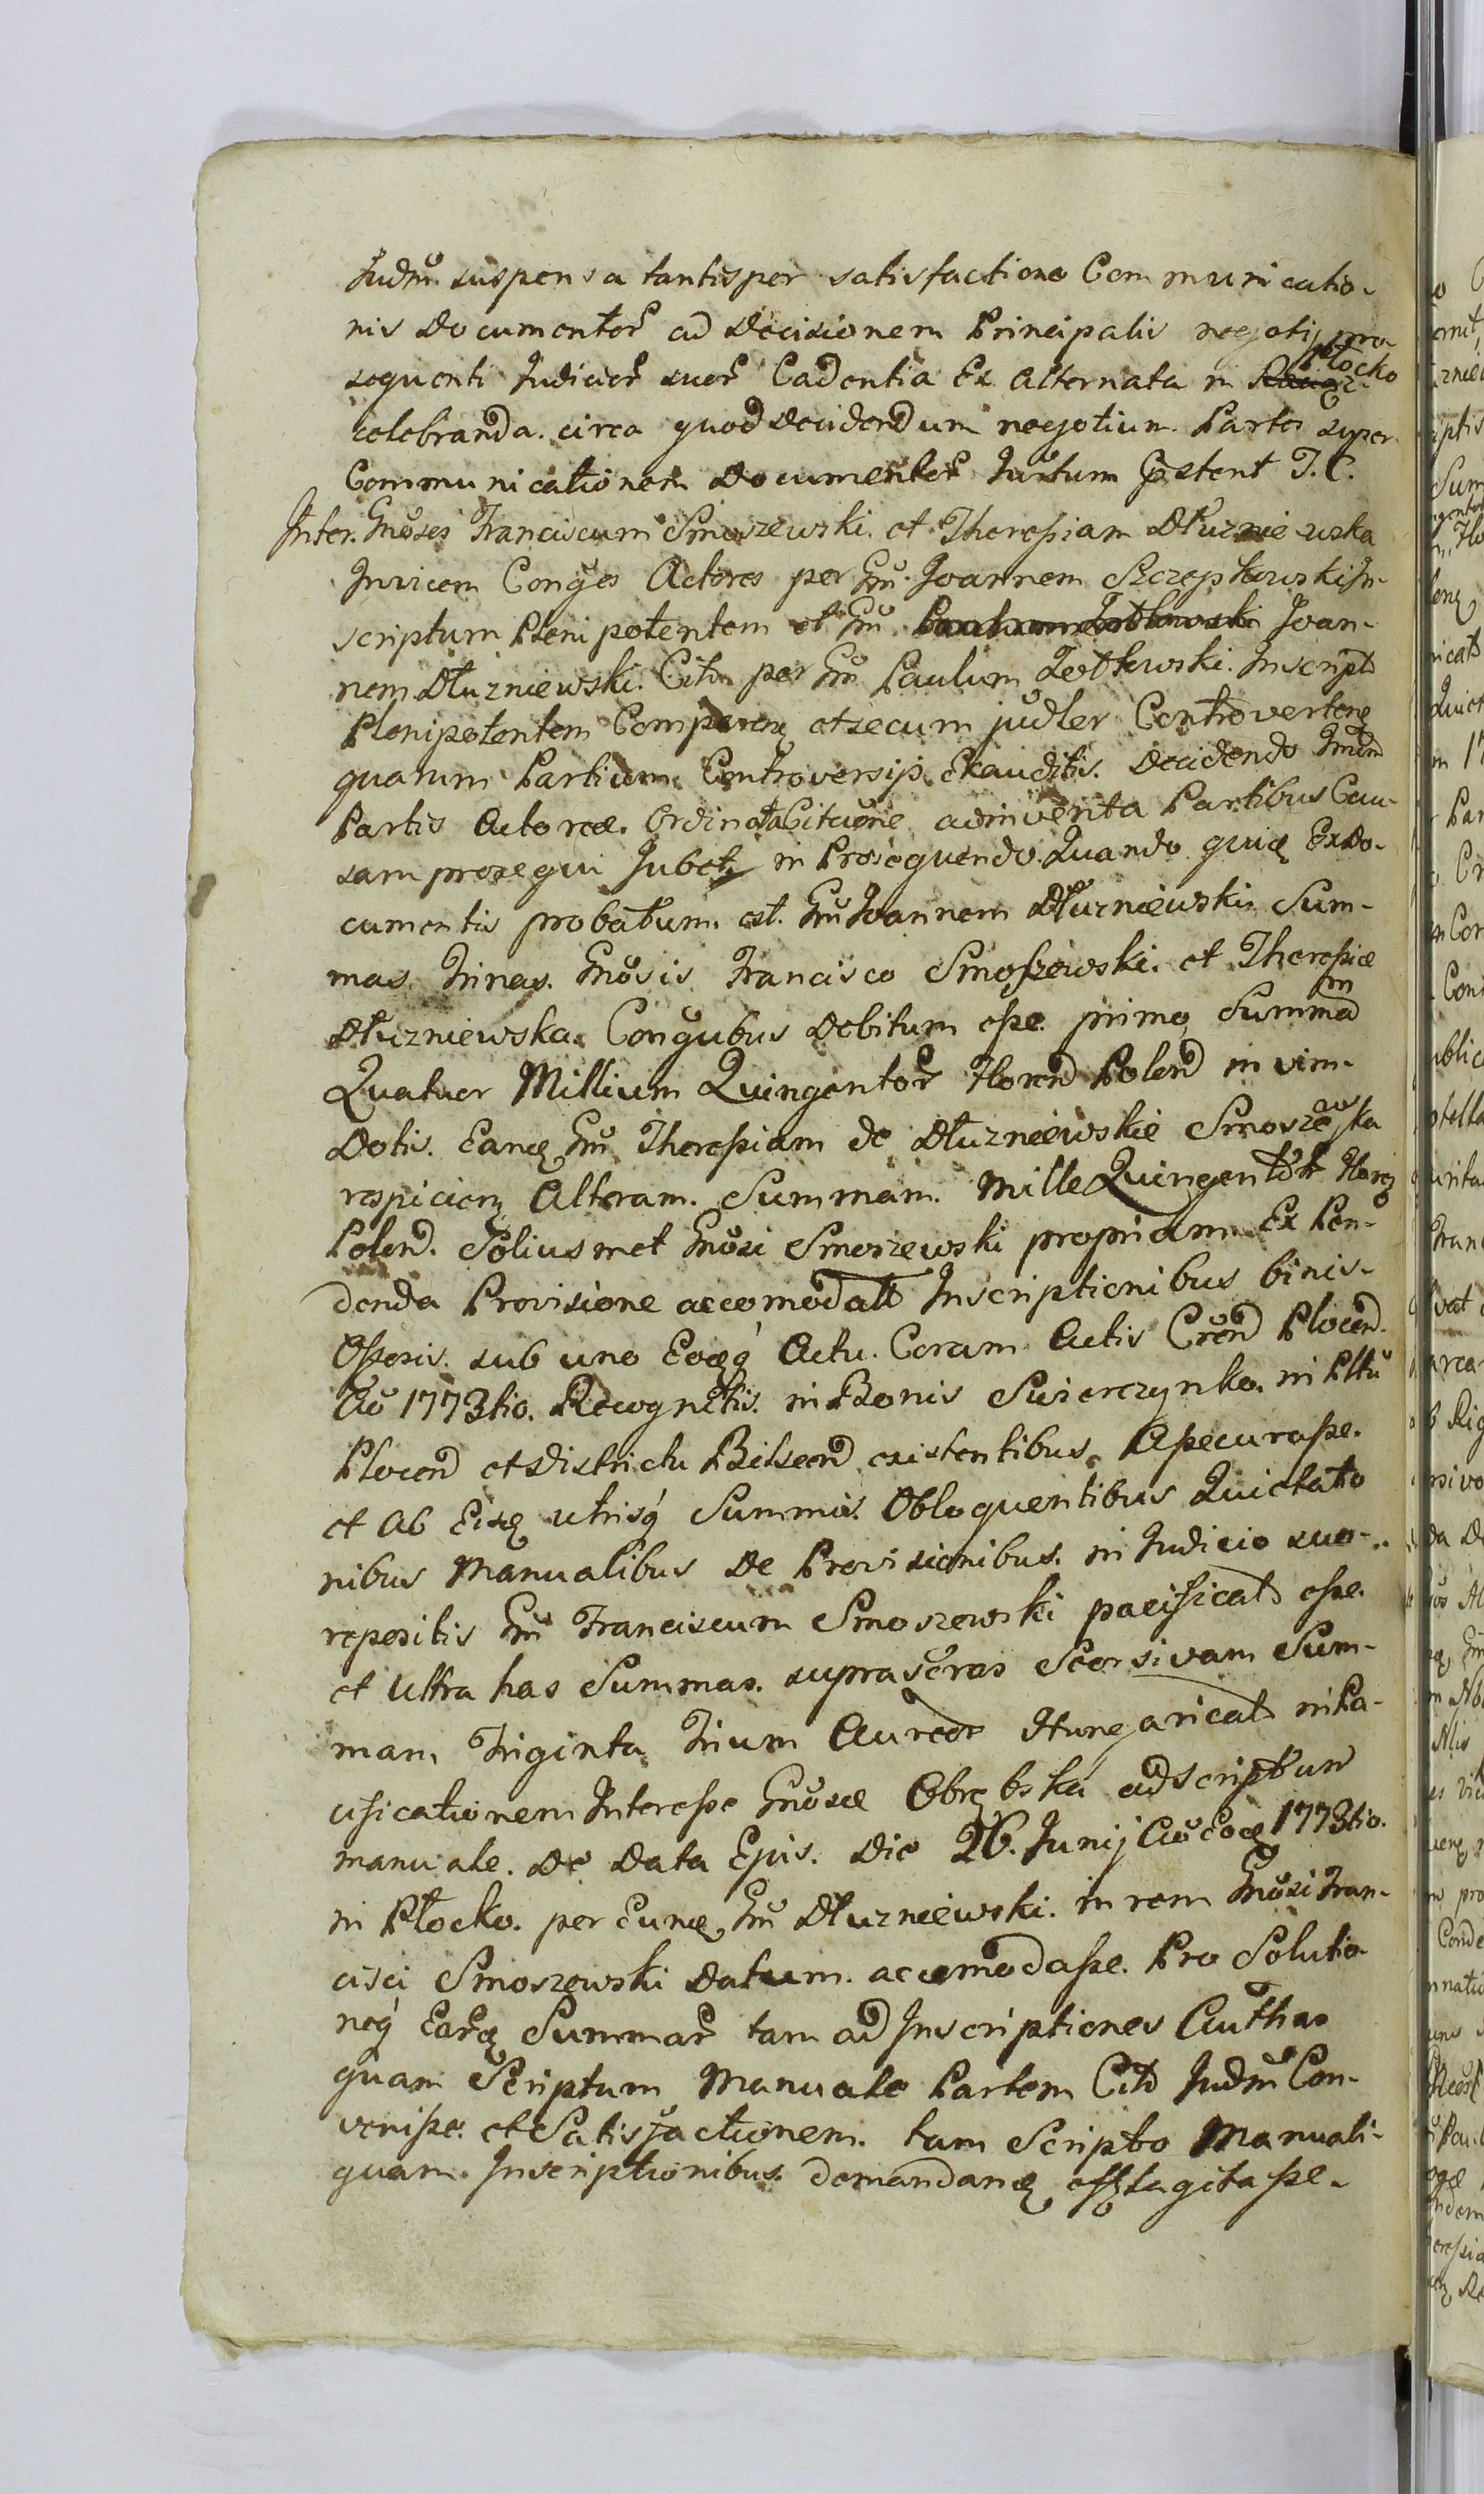 Judm̃ suspensa tantisper satisfactione Communicatio-
nis Documentor̃ ad Decisionem Principalis negotij pro-
sequenti Judicior̃ suor̃ Cadentia Ex Alternata in Płocko
celebranda. circa quod Decidendum negotium. Partes super
Communicationem Documentor̃ Justum T. C.
Inter. Gnõsos Franciscum Smoszewski. et Theressiam Dłuzniewska
Invicem Conğes Actores per Gnũ. Joannem Szczepkowski In-
scriptum Plenipotentem et Gnũ Joan-
nem Dłuzniewski. Citũ per Gnũ Paulum Zołtkowski. Inscript
Plenipotentem Comparen et secum judler Controverten
quarum Partium Controversijs Exauditis. Decidendo
Partis Actoreæ. Ordinata Citatione adinventa Partibus Cau-
sam prosequi Jubet, in Prosequendo. Quando quidꝫ Ex Do-
cumentis probatum. est. Gnũ Joannem Dłuzniewski Sum-
mas Trinas. Gnõsis Francisco Smoszewski. et Theressiæ
Dłuzniewska. Conğubus Debitum esse. primo Summam
Quatuor Millium Quingentor̃ Floren̄ Polon̄ in vim-
Dotis. Eandꝫ Gnũ Theressiam de Dłuzniewskie Smoszewska
respicien Alteram. Summam. Mille Quingentor̃ Floren
Polon̄. Soliusmet Gnõsi Smoszewski propriam Ex Pen-
denda Provisione accomodat̄ Inscriptionibus binis-
Osseris. sub uno Eoqꝫ Actu. Coram Actis Cren̄ Plocen̄
Aõ 1773tio. Recognitis. in Bonis Swierczynko. in Pltũ
Plocen̄ et Districtu Bilscen̄ existentibus. Assecurasse.
et Ab Eisdꝫ utrisq́ Summis. Obloquentibus Quietatio
nibus Manualibus De Provisionibus. in Judicio suo-
repositis Gnũ Franciscum Smoszewski pacificat̄ esse.
et Ultra has Summas. suprascr̃as Seorsivam Sum-
mam Triginta Trium Aureor̃ Hungarical̄ in Pa-
cificationem Interesse Gnõsæ Obrębska ad Scriptum
manuale. De Data Ejus. Die 26. Junij Aõ Eodꝫ 1773tio.
in Płocko. per Eundꝫ Gnũ Dłuzniewski. in rem Gnõsi Fran-
cisci Smoszewski Datum. accomodasse. Pro Solutio
neq́ Ear̃dꝫ Summar̃ tam ad Inscriptiones Autĥas
quam Scriptum Manuale Partem Cit̄ Judm̃ Con-
venisse. et Satisfactionem. tam Scripto Manuali-
quam. Inscriptionibus. demandan efflagitasse.